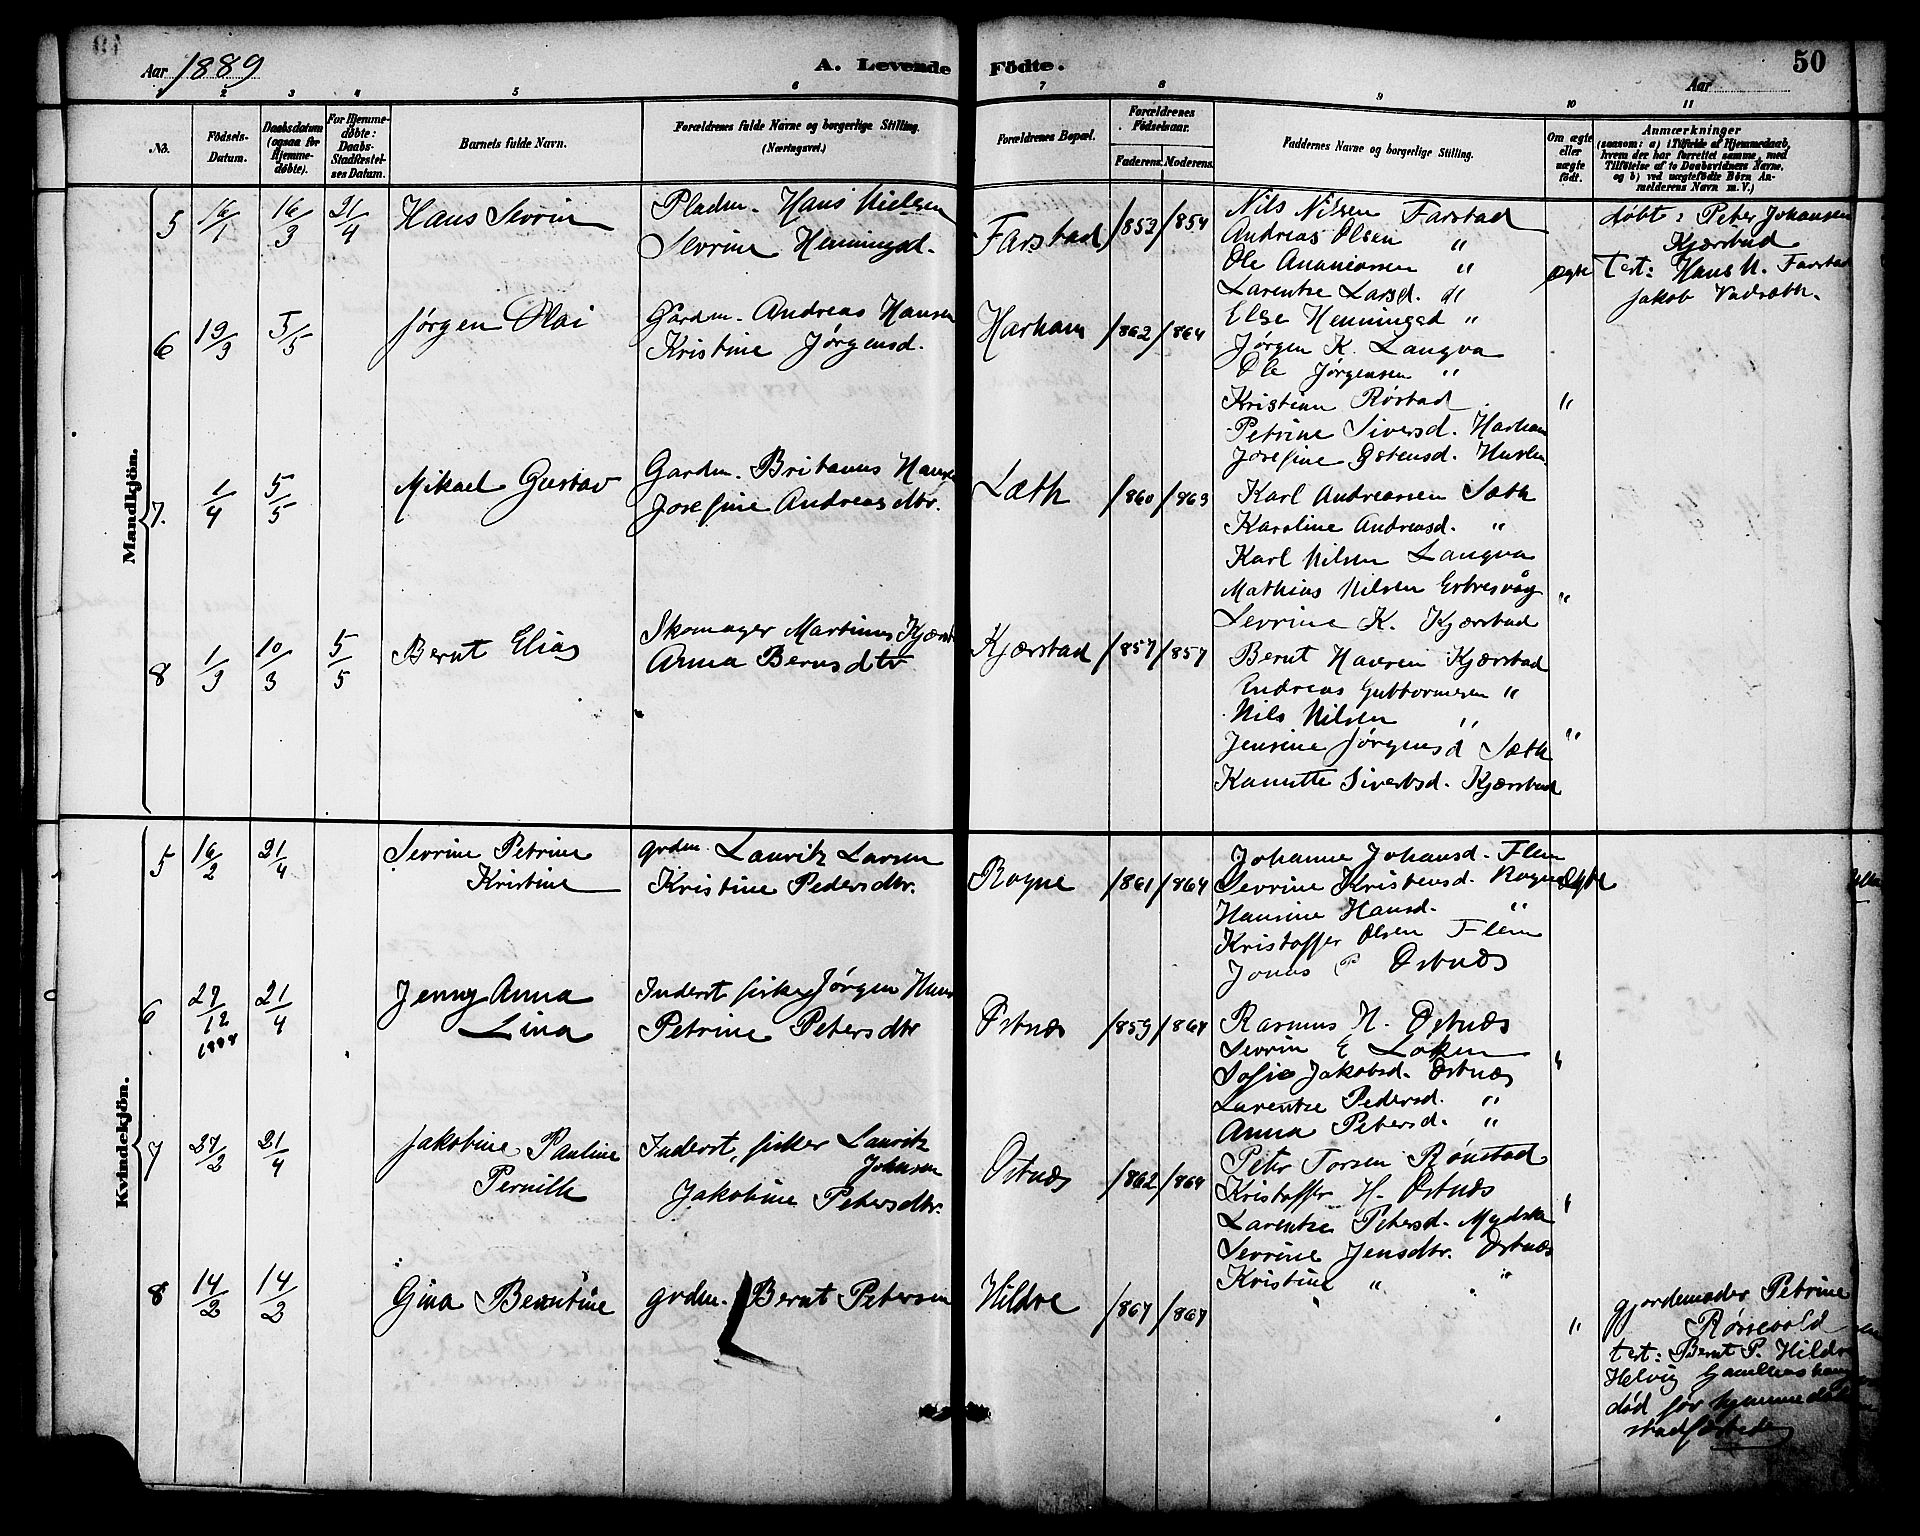 Aar 1889
A. Levende Födte.
Aar
50
1 2 3 4 5 6 7 8 9 10 11
No.
Födsels-Datum.
Daabsdatum (ogsaa for Hjemme-døbte).
For Hjemme-døbte: Daabs-Stadfæstel-ses Datum.
Barnets fulde Navn.
Forældrenes fulde Navne og borgerlige Stilling. (Næringsvei.)
Forældrenes Bopæl.
Forældrenes Födselsaar.
Faderens. Moderens.
Faddernes Navne og borgerlige Stilling.
Om ægte eller uægte födt.
Anmærkninger
(saasom: a) i Tilfælde af Hjemmedaab, hvem der har forrettet samme, med Tilföielse af to Daabsvidners Navne, og b) ved uægtefödte Börn An-melderens Navn m. V.)
Mandkjön.
5 16/1 16/3 21/4 Hans Sevrin
Pladm. Hans Nielsen
Sevrine Henningsd.
Farstad 1853 1854
Nils Nilsen Farstad
Andreas Olsen "
Ole Ananiassen "
Larentze Larsd. "
Else Henningsd "
Ægte
døbt: Peter Johansen
Kjærstad
Test: Hans N. Farstad
Jakob Vadsæth.
6 19/3 5/5 Jørgen Olai
Gardm. Andreas Hansen
Kristine Jørgensd.
Harham 1862 1864
Jørgen K. Langva
Ole Jørgensen "
Kristian Røstad
Petrine Siversd. Harham
Josefine Østensd.
"
7. 1/4 5/5 Mikael Gustav
Gardm. Britanus Hansen
Josefine Andreasdtr.
Sæth 1860 1863
Karl Andreassen Sæth
Karoline Andreasd. "
Karl Nilsen Langva
Mathias Nilsen
Sevrine K. Kjærstad
"
8 1/3 10/3 5/5 Bernt Elias
Skomager Martinus Kjærst
Anna Bernsdtr
Kjærstad 1857 1857
Bernt Hansen Kjærstad
Andreas Guttormsen "
Nils Nilsen "
Jensine Jørgensd Sæth
Kanutte Sivertsd. Kjærstad
"
Kvindekjön.
5 16/2 21/4 Sevrine Petrine
Kristine
grdm. Lauritz Larsen
Kristine Pedersdtr.
Rogne 1861 1864
Johanne Johansd. Flem
Sevrine Kristensd. Rogne
Hansine Hansd. "
Kristoffer Olsen Flem
Jonas P Østnæs
Ægte
6 27/12 1888 21/4 Jenny Anna
Lina
Inderst fisker Jørgen Hans
Petrine Petersdtr
Østnæs 1859 1864
Rasmus H. Østnæs
Sevrin E Løken
Sofie Jakobsd. Østnæs
Larentze Pedersd. "
Anna Petersd. "
"
7 27/2 21/4 Jakobine Pauline
Pernille
Inderst, fisker Lauritz
Johnsen
Jakobine Petersdtr.
Østnæs 1862 1864
Peter Torsen Rønstad
Kristoffer H. Østnæs
Larentze Petersd.
Sevrine Jensdtr. Østnæs
Kristine " "
"
8 14/2 14/2 Gina Berntine
grdm. Bernt Petersen
Hildre 1867 1867
"
gjordemoder Petrine
Rørsevold
test: Bernt P. Hildre
Helvig
død før hjemmedåben